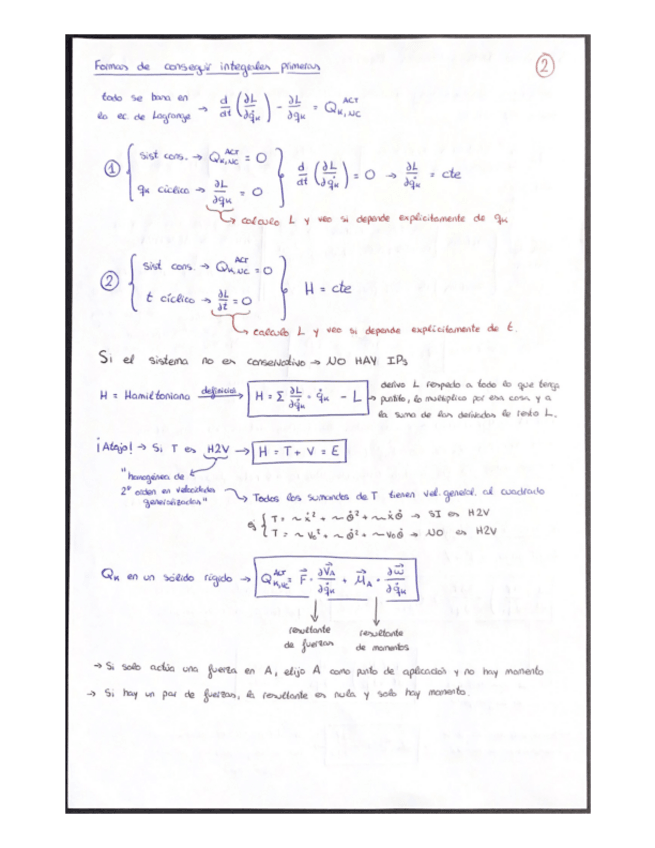 Formas de conseguir integrales primeras
2
todo se basa en
la ec. de Lagrange → d/dt (∂L/∂q̇ₖ) - ∂L/∂qₖ = Q_{K,NC}^{ACT}
① { sist cons. → Q_{K,NC}^{ACT} = 0
qₖ cíclica → ∂L/∂qₖ = 0 } d/dt (∂L/∂q̇ₖ) = 0 → ∂L/∂q̇ₖ = cte
↳ calculo L y veo si depende explícitamente de qₖ
② { sist cons. → Q_{K,NC}^{ACT} = 0
t cíclico → ∂L/∂t = 0 } H = cte
↳ calculo L y veo si depende explícitamente de t.
Si el sistema no es conservativo → NO HAY IPs
H = Hamiltoniana definición→ H = Σ ∂L/∂q̇ₖ · q̇ₖ - L → derivo L respecto a todo lo que tenga
puntito, lo multiplico por esa cosa y a
la suma de las derivadas le resto L.
¡Atajo! → Si T es H2V → H = T + V = E
"homogénea de
2º orden en velocidades
generalizadas"
↳ Todos los sumandos de T tienen vel. general. al cuadrado
ej { T = ~ẋ² + ~θ̇² + ~ẋθ̇ → SI es H2V
T = ~v₀² + ~θ̇² + ~v₀θ̇ → NO es H2V
Qₖ en un sólido rígido → Q_{K,NC}^{ACT} = F⃗ · ∂v⃗_A/∂q̇ₖ + M⃗_A · ∂ω⃗/∂q̇ₖ
resultante
de fuerzas
resultante
de momentos
→ Si solo actúa una fuerza en A, elijo A como punto de aplicación y no hay momento
→ Si hay un par de fuerzas, la resultante es nula y solo hay momento.